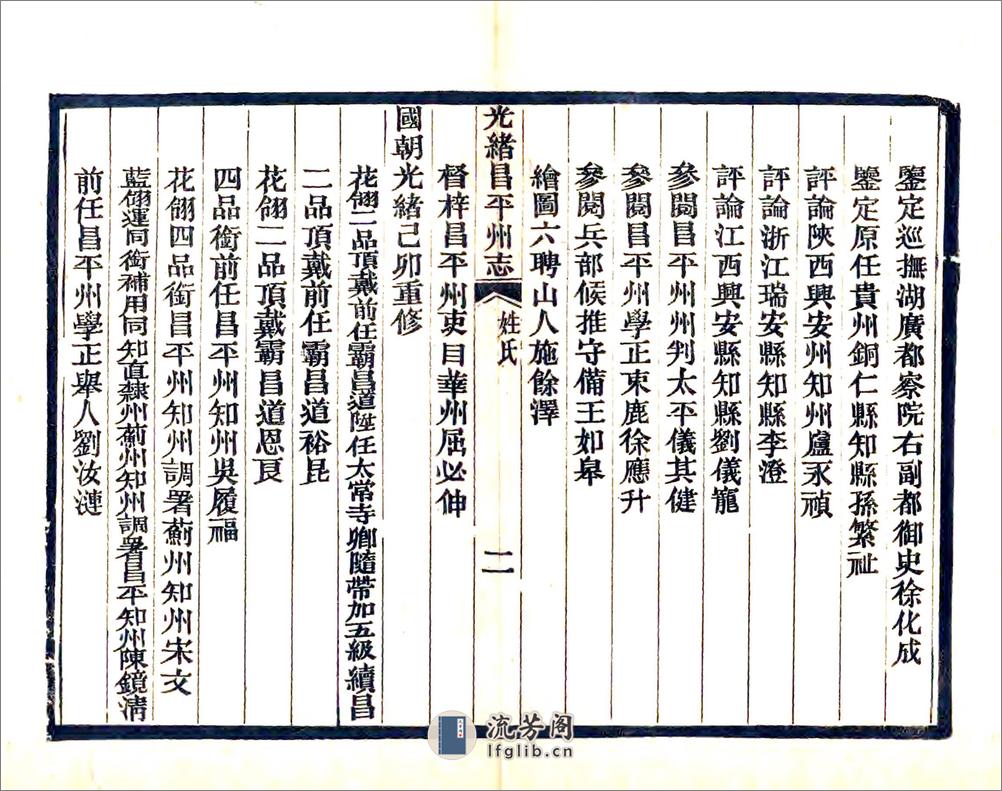 鑒定巡撫湖廣都察院右副都御史徐化成
鑒定原任貴州銅仁縣知縣孫繁祉
評論陝西興安州知州盧永禎
評論浙江瑞安縣知縣李澄
評論江西興安縣知縣劉儀寵
參閱昌平州州判太平儀其健
參閱昌平州學正束鹿徐應升
參閱兵部候推守備王如皋
繪圖六聘山人施餘澤
督梓昌平州吏目華州屈必伸
光緒昌平州志
姓氏
二
國朝光緒己卯重修
花翎二品頂戴前任霸昌道陞任太常寺卿隨帶加五級續昌
二品頂戴前任霸昌道裕昆
花翎二品頂戴霸昌道恩良
四品銜前任昌平州知州吳履福
花翎四品銜昌平州知州調署薊州知州宋文
藍翎運同銜補用同知直隸州薊州知州調署昌平知州陳鏡清
前任昌平州學正舉人劉汝漣
流芳阁
lfglib.cn